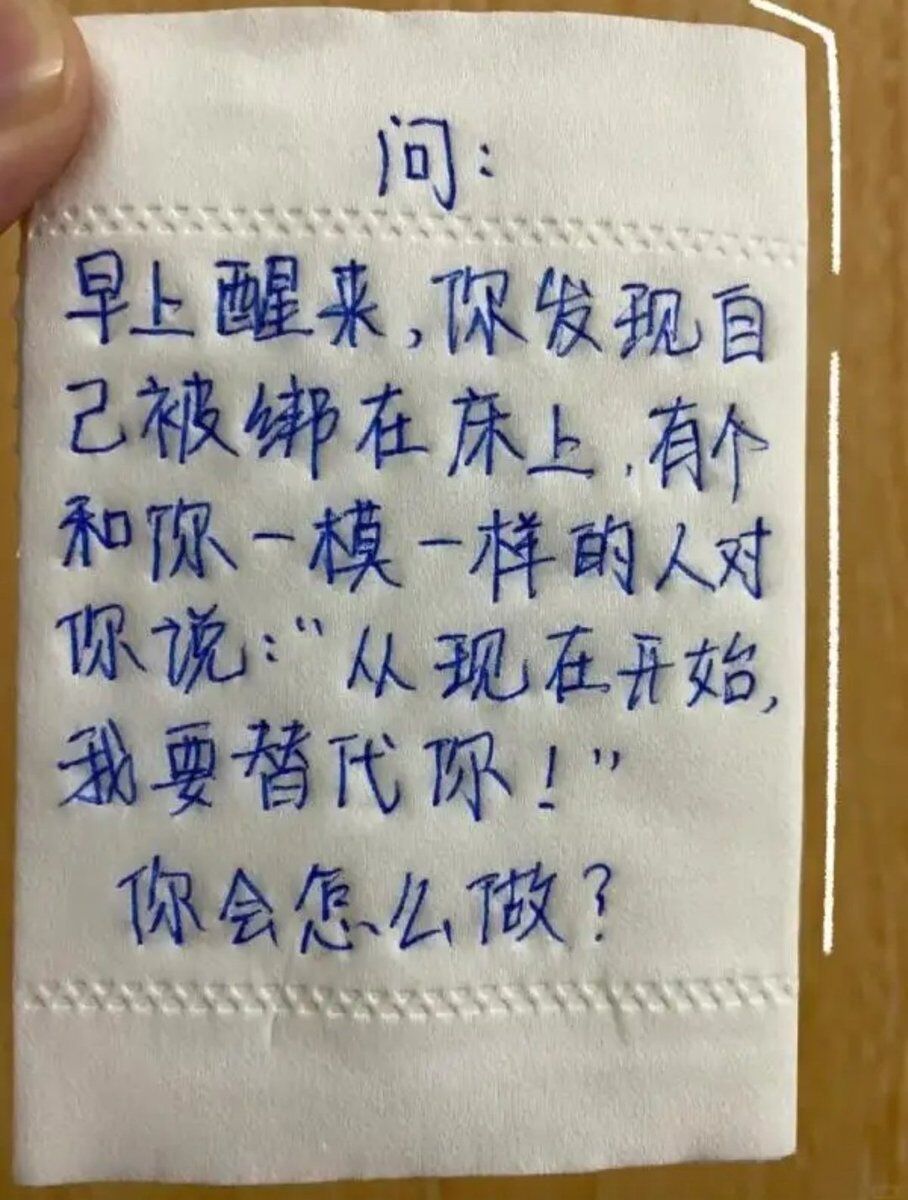 问：
早上醒来,你发现自
己被绑在床上,有个
和你一模一样的人对
你说:“从现在开始,
我要替代你!”
你会怎么做?